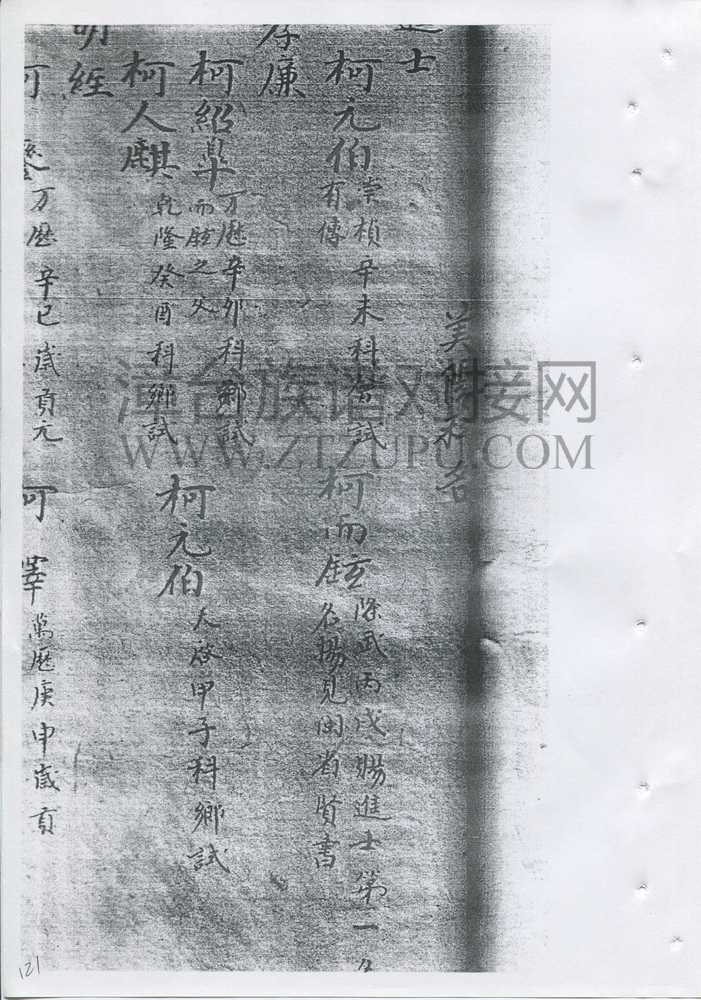 進士
柯元伯 崇禎辛未科會試
有傳
柯而鉉 隆武丙戌賜進士第一名
名揚見閩省賢書
孝廉
柯紹皐 万歷辛卯科鄉試
而鉉之父
柯元伯 天啓甲子科鄉試
柯人麒 乾隆癸酉科鄉試
明經
柯 万歷辛巳歲貢元
柯 萬歷庚申歲貢
台族谱对接网
WWW.ZTZUPU.COM
121